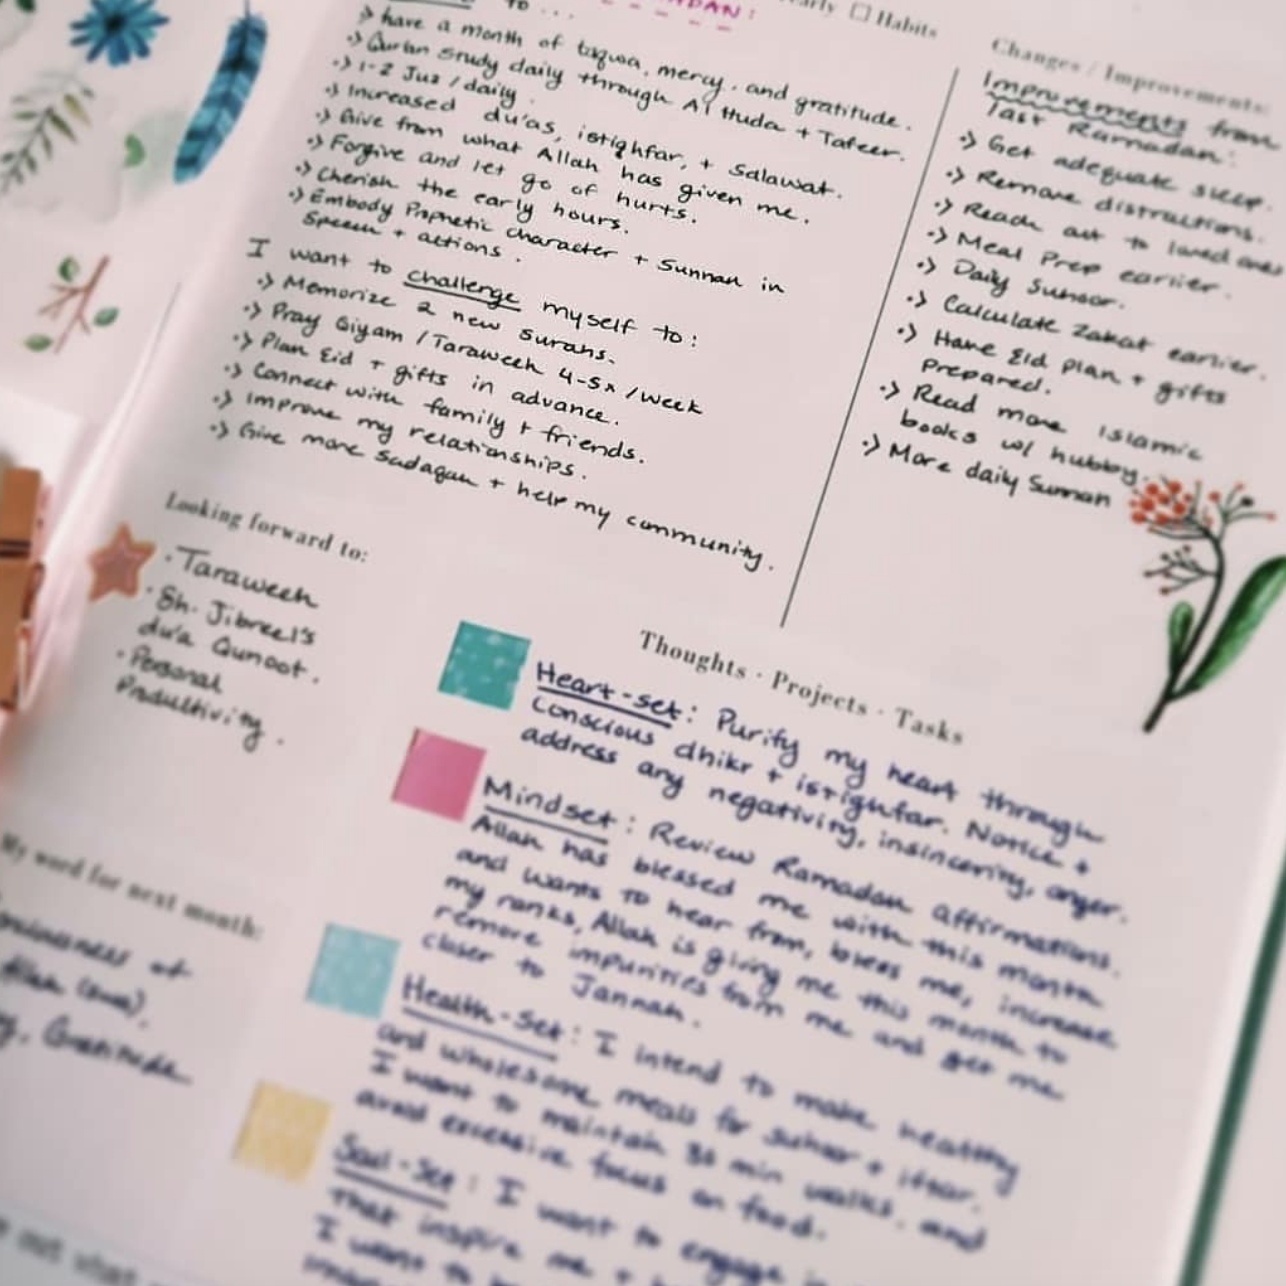 to...
have a month of taqwa, mercy, and gratitude.
Qur'an study daily through Al Huda + Tafseer.
1-2 Juz / daily.
Increased du'as, istighfar, + Salawat.
Give from what Allah has given me.
Forgive and let go of hurts.
Cherish the early hours.
Embody Prophetic character + Sunnah in
Speech + actions.
I want to challenge myself to:
Memorize 2 new surahs.
Pray Qiyam / Taraweeh 4-5x /week
Plan Eid + gifts in advance.
Connect with family + friends.
Improve my relationships.
Give more Sadaqah + help my community.
Habits
Changes / Improvements:
Improvements from
last Ramadan:
Get adequate sleep.
Remove distractions.
Reach out to loved ones
Meal Prep earlier.
Daily Suhoor.
Calculate Zakat earlier.
Have Eid plan + gifts
prepared.
Read more Islamic
books w/ hubby.
More daily Sunnah
Looking forward to:
Taraweeh
Sh. Jibreel's
du'a Qunoot.
Personal
Productivity.
My word for next month:
of
Allah (swt),
Gratitude
Thoughts · Projects · Tasks
Heart-set: Purify my heart through
Conscious dhikr + istighfar. Notice +
address any negativity, insincerity, anger.
Mindset: Review Ramadan affirmations.
Allah has blessed me with this month
and wants to hear from, bless me, increase
my ranks, Allah is giving me this month to
remove impurities from me and get me
closer to Jannah.
Health-Set: I intend to make healthy
and wholesome meals for suhoor + iftar.
I want to maintain 30 min walks, and
avoid excessive focus on food.
Soul-Set: I want to engage in
that inspire me +
I want to
out what